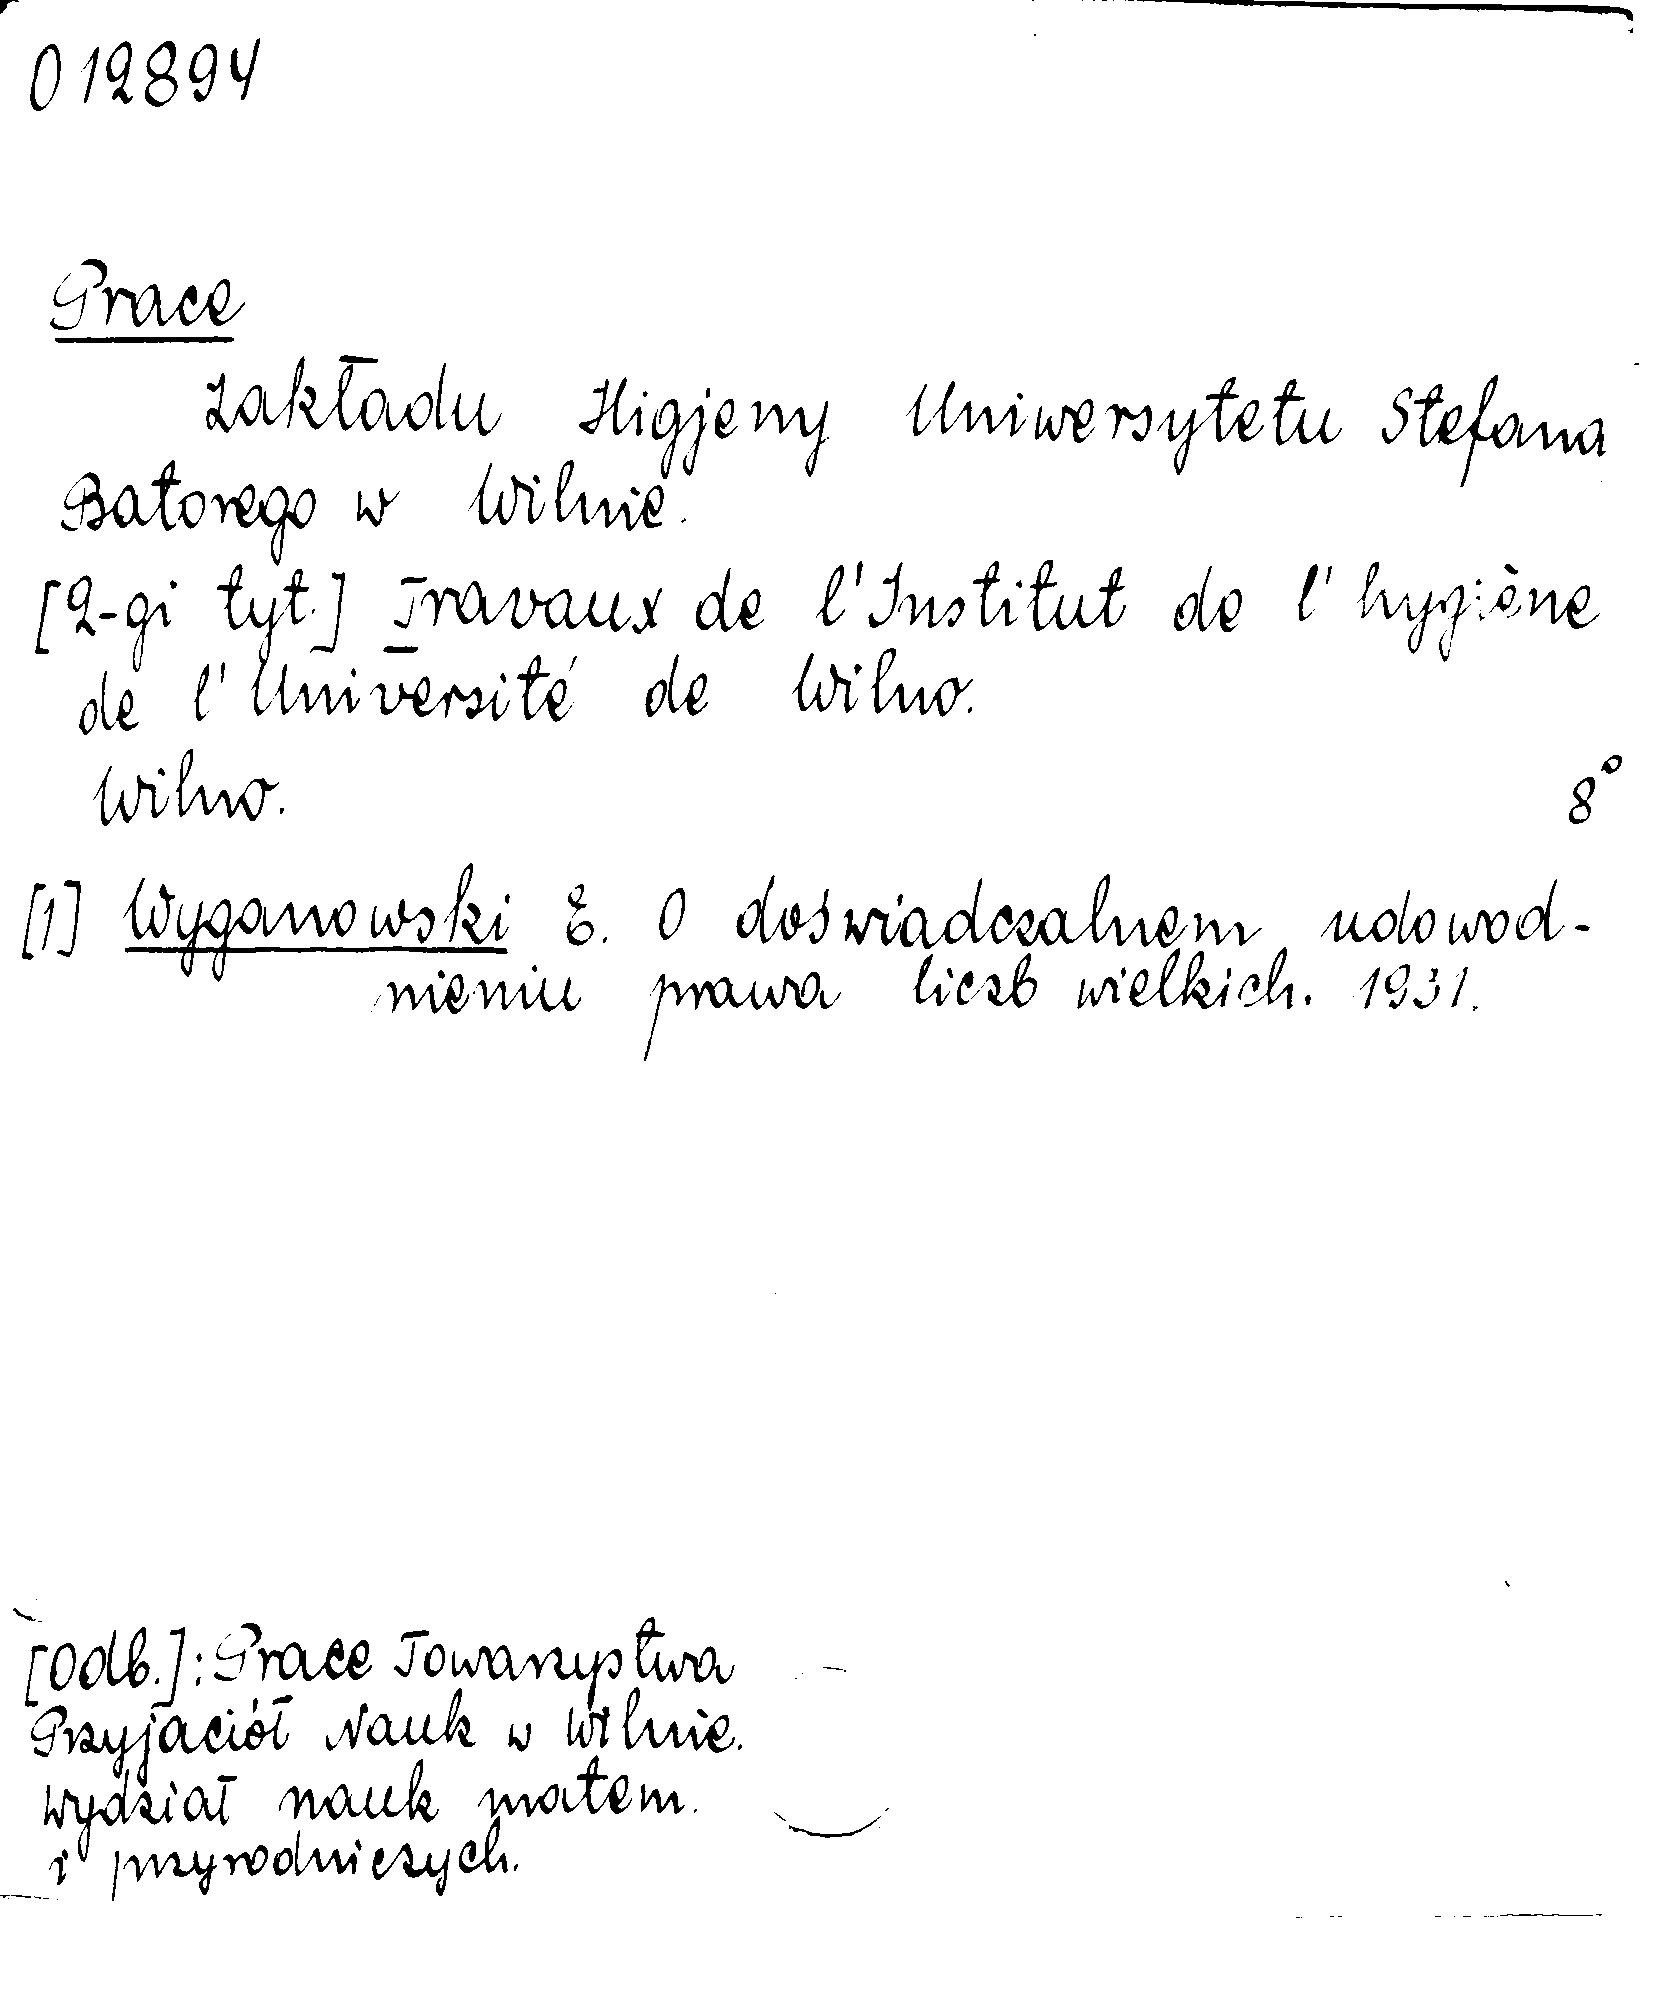 012894
Prace
Zakładu Higjeny Uniwersytetu Stefana
Batorego w Wilnie.
[2-gi tyt.] Travaux de l'Institut de l'hygiène
de l'Université de Wilno.
Wilno. 8°
[1] Wyganowski E. O doświadczalnem udowod-
nieniu prawa liczb wielkich. 1931.
[Odb.]: Prace Towarzystwa
Przyjaciół Nauk w Wilnie.
Wydział nauk matem.
i przyrodniczych.